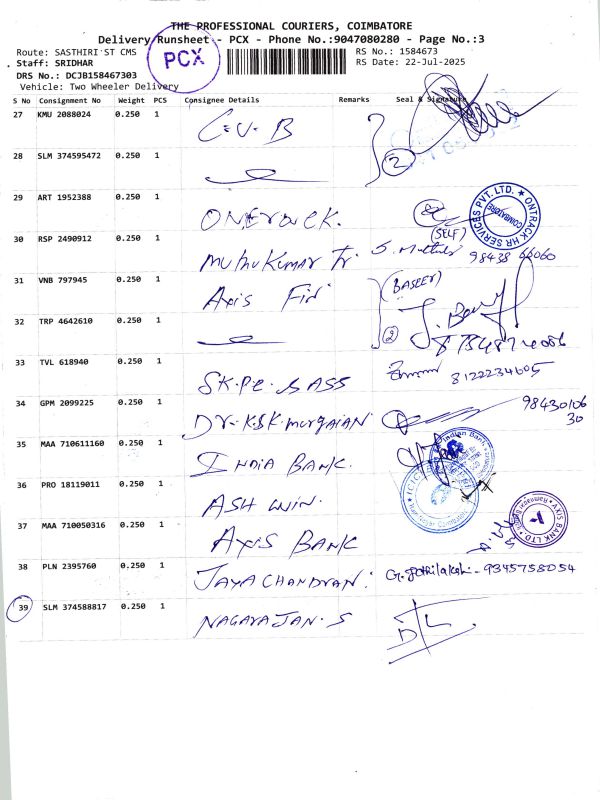 THE PROFESSIONAL COURIERS, COIMBATORE
Delivery Runsheet - PCX - Phone No.:9047080280 - Page No.:3
Route: SASTHIRI ST CMS
RS No.: 1584673
Staff: SRIDHAR
RS Date: 22-Jul-2025
DRS No.: DCJB158467303
Vehicle: Two Wheeler Delivery
PCX
S No Consignment No Weight PCS Consignee Details Remarks Seal & Signature
27 KMU 2088024 0.250 1 C.U.B
28 SLM 374595472 0.250 1
2
29 ART 1952388 0.250 1 ONETRACK.
ONTRACK HR SERVICES PVT. LTD. COIMBATORE
(SELF)
30 RSP 2490912 0.250 1 MUTHUKUMAR Tr. 98438 66060
31 VNB 797945 0.250 1 Axis Fin (BASEER)
32 TRP 4642610 0.250 1
2
33 TVL 618940 0.250 1 SK.PE. 8122234605
34 GPM 2099225 0.250 1 Dr. K.S.K. Murgaian 98430106
30
35 MAA 710611160 0.250 1 INDIA BANK.
Indian Bank
36 PRO 18119011 0.250 1 ASHWIN.
ICICI
37 MAA 710050316 0.250 1 AXIS BANK
AXIS BANK LTD.
38 PLN 2395760 0.250 1 JAYACHANDRAN. 9345758054
39 SLM 374588817 0.250 1 NAGARAJAN. S